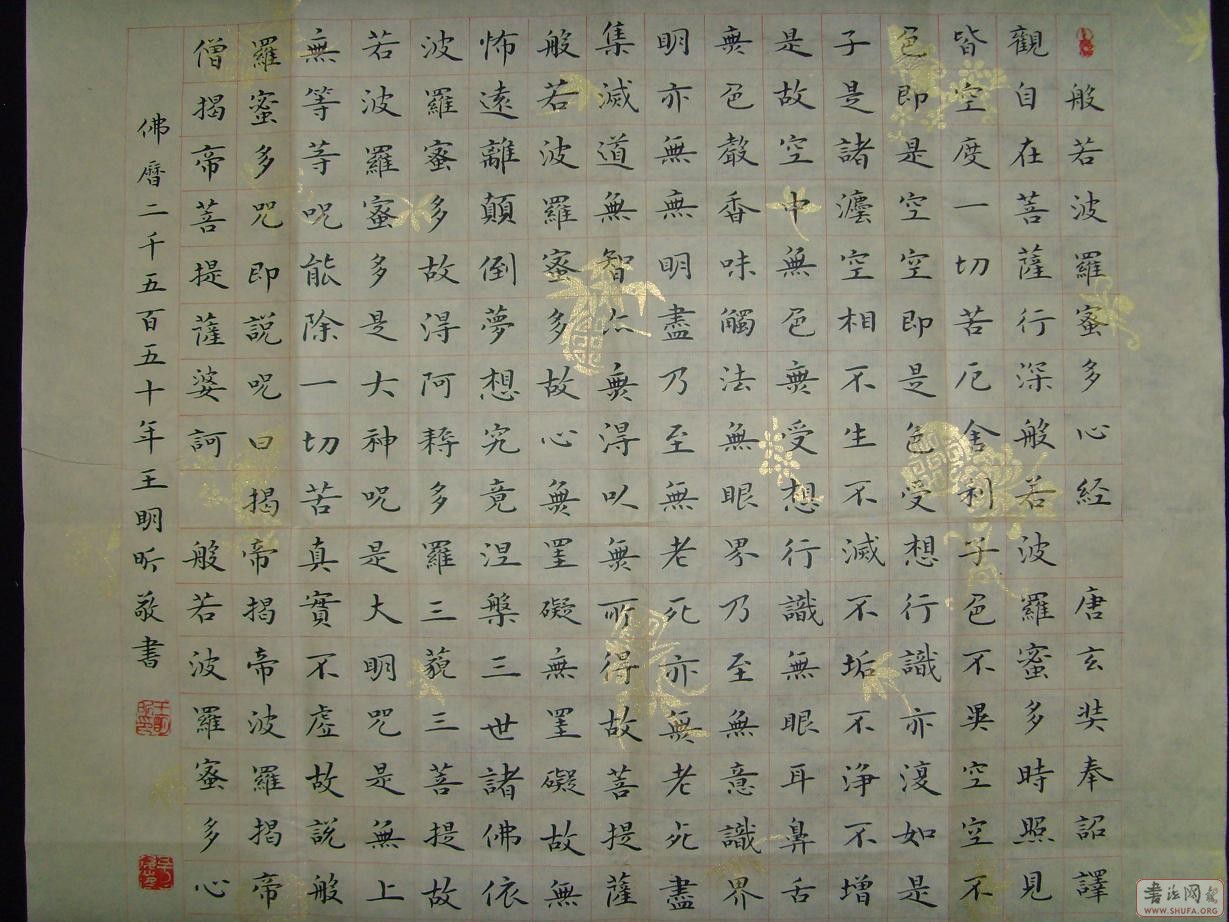 般若波羅蜜多心経 唐玄奘奉詔譯
觀自在菩薩行深般若波羅蜜多時照見
皆空度一切苦厄舍利子色不異空空不
色即是空空即是色受想行識亦復如是
子是諸灋空相不生不滅不垢不淨不增
是故空中無色無受想行識無眼耳鼻舌
無色聲香味觸法無眼界乃至無意識界
明亦無無明盡乃至無老死亦無老死盡
集滅道無智亦無得以無所得故菩提薩
般若波羅蜜多故心無罣礙無罣礙故無
怖遠離顛倒夢想究竟涅槃三世諸佛依
波羅蜜多故得阿耨多羅三藐三菩提故
若波羅蜜多是大神咒是大明咒是無上
無等等咒能除一切苦真實不虛故說般
羅蜜多咒即說咒曰揭帝揭帝波羅揭帝
僧揭帝菩提薩婆訶般若波羅蜜多心
佛曆二千五百五十年王明昕敬書
书法网
WWW.SHUFA.ORG